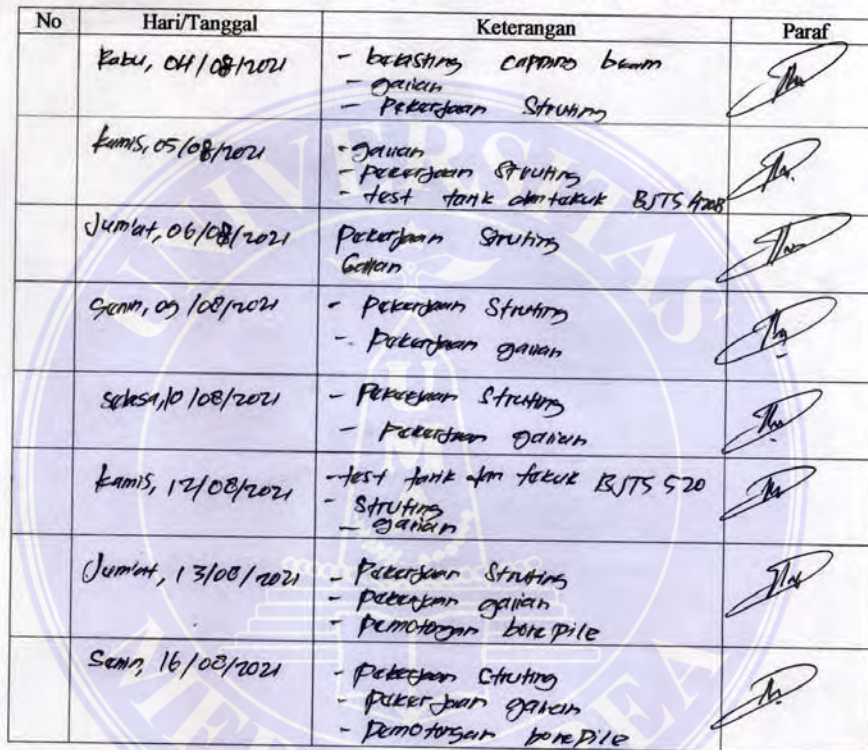 No Hari/Tanggal Keterangan Paraf
Rabu, 04/08/2021 - bekisting capping beam
- galian
- Pekerjaan Struting
Kamis, 05/08/2021 - galian
- pekerjaan Struting
- test tarik dan tekuk BJTS 420B
Jum'at, 06/08/2021 Pekerjaan Struting
Galian
Senin, 09/08/2021 - Pekerjaan Struting
- Pekerjaan galian
Selasa, 10/08/2021 - Pekerjaan Struting
- Pekerjaan galian
Kamis, 12/08/2021 - test tarik dan tekuk BJTS 520
- Struting
- galian
Jum'at, 13/08/2021 - Pekerjaan Struting
- Pekerjaan galian
- Pemotongan bore pile
Senin, 16/08/2021 - Pekerjaan Struting
- Pekerjaan galian
- Pemotongan bore pile
UNIVERSITAS
UMA
MEDAN AREA